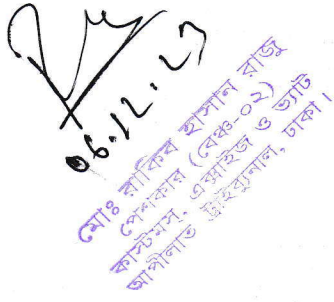 06.12.23
মোঃ রাকিব হাসান রাজু
পেশকার (বেঞ্চ-০২)
কাস্টমস, এক্সাইজ ও ভ্যাট
আপীলাত ট্রাইব্যুনাল, ঢাকা।